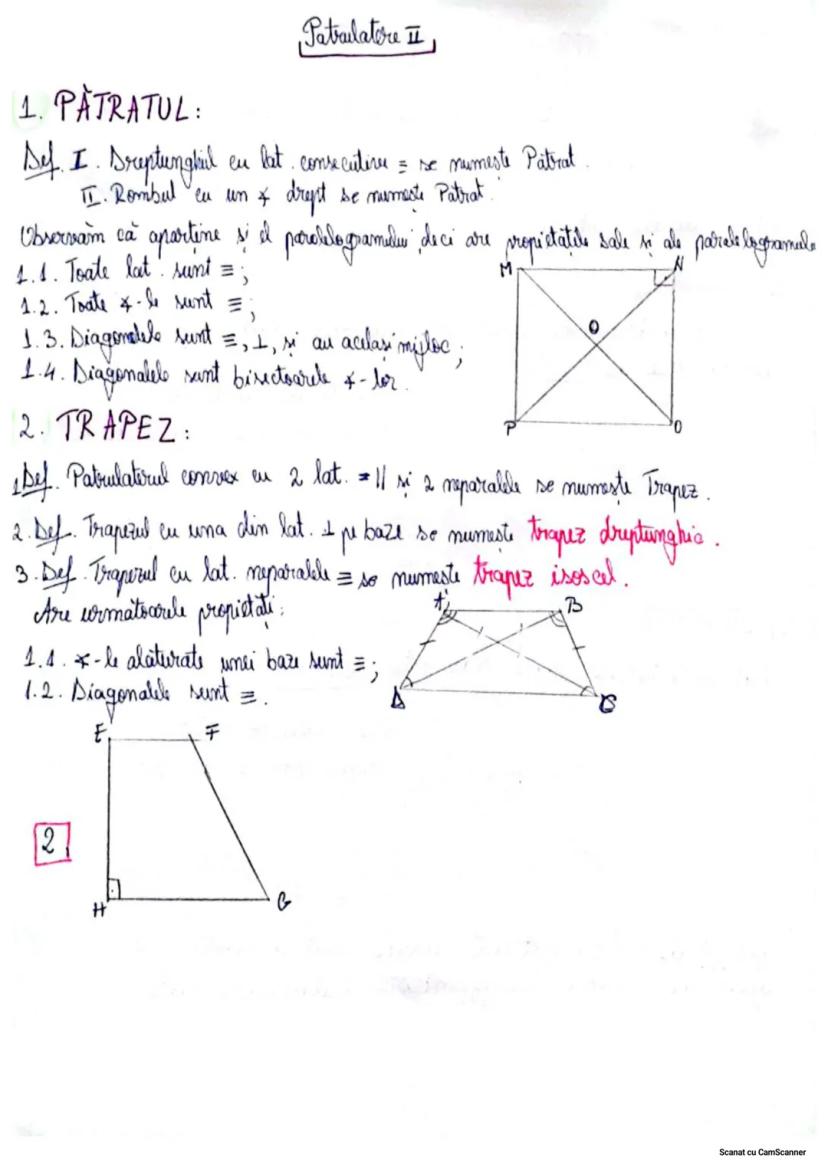 Patrulatere II
1. PĂTRATUL:
Def. I. Dreptunghiul cu lat. consecutive ≡ se numește Pătrat.
II. Rombul cu un ∢ drept se numește Pătrat.
Observăm că aparține și el paralelogramului, deci are proprietățile sale și ale paralelogramului
1.1. Toate lat. sunt ≡;
M
N
1.2. Toate ∢-le sunt ≡;
1.3. Diagonalele sunt ≡, ⊥, și au același mijloc;
O
1.4. Diagonalele sunt bisectoarele ∢-lor.
P
O
2. TRAPEZ:
1 Def. Patrulaterul convex cu 2 lat. = || și 2 neparalele se numește Trapez.
2. Def. Trapezul cu una din lat. ⊥ pe baze se numește trapez dreptunghic.
3. Def. Trapezul cu lat. neparalele ≡ se numește trapez isoscel.
Are următoarele proprietăți:
A
B
1.1. ∢-le alăturate unei baze sunt ≡;
1.2. Diagonalele sunt ≡.
D
C
E
F
2
H
G
Scanat cu CamScanner